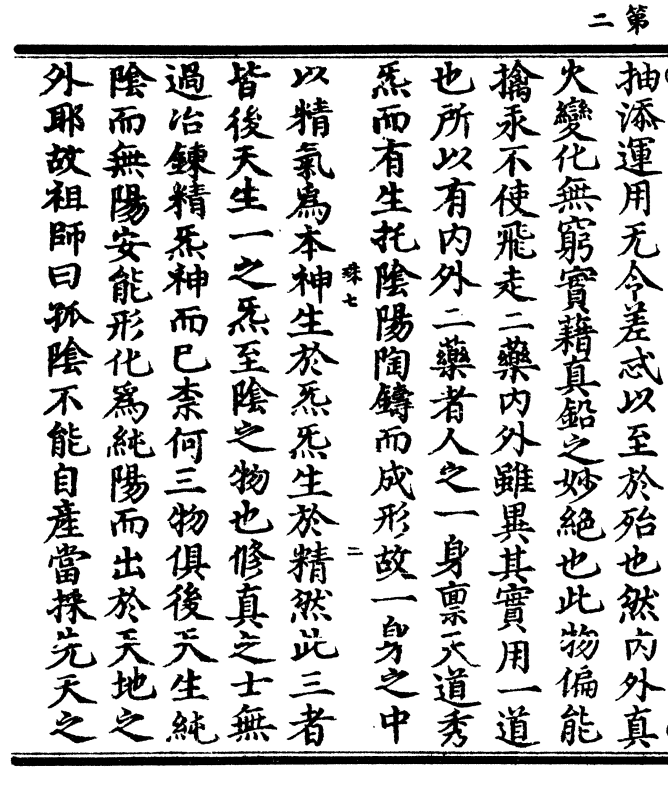 第二
抽添運用无令差忒以至於殆也然内外真
火變化無窮實藉真鉛之妙絶也此物偏能
擒汞不使飛走二藥内外雖異其實用一道
也所以有内外二藥者人之一身禀天道秀
炁而有生托陰陽陶鑄而成形故一身之中
珠七
二
以精氣爲本神生於炁炁生於精然此三者
皆後天生一之炁至陰之物也修真之士無
過冶鍊精炁神而已柰何三物俱後天生純
陰而無陽安能形化爲純陽而出於天地之
外耶故祖師曰孤陰不能自產當採先天之